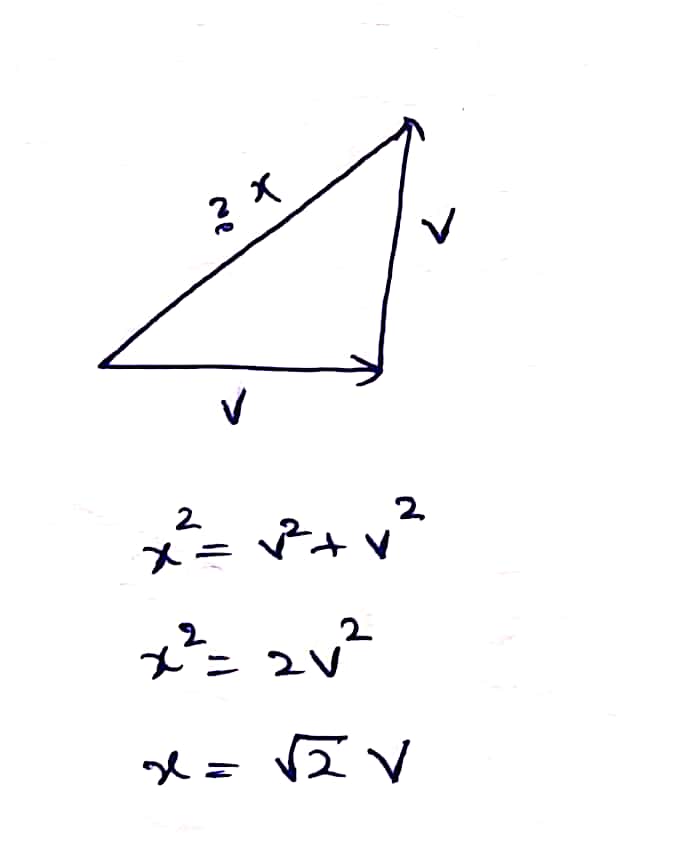 ? x
V
V
x² = v² + v²
x² = 2v²
x = √2 V